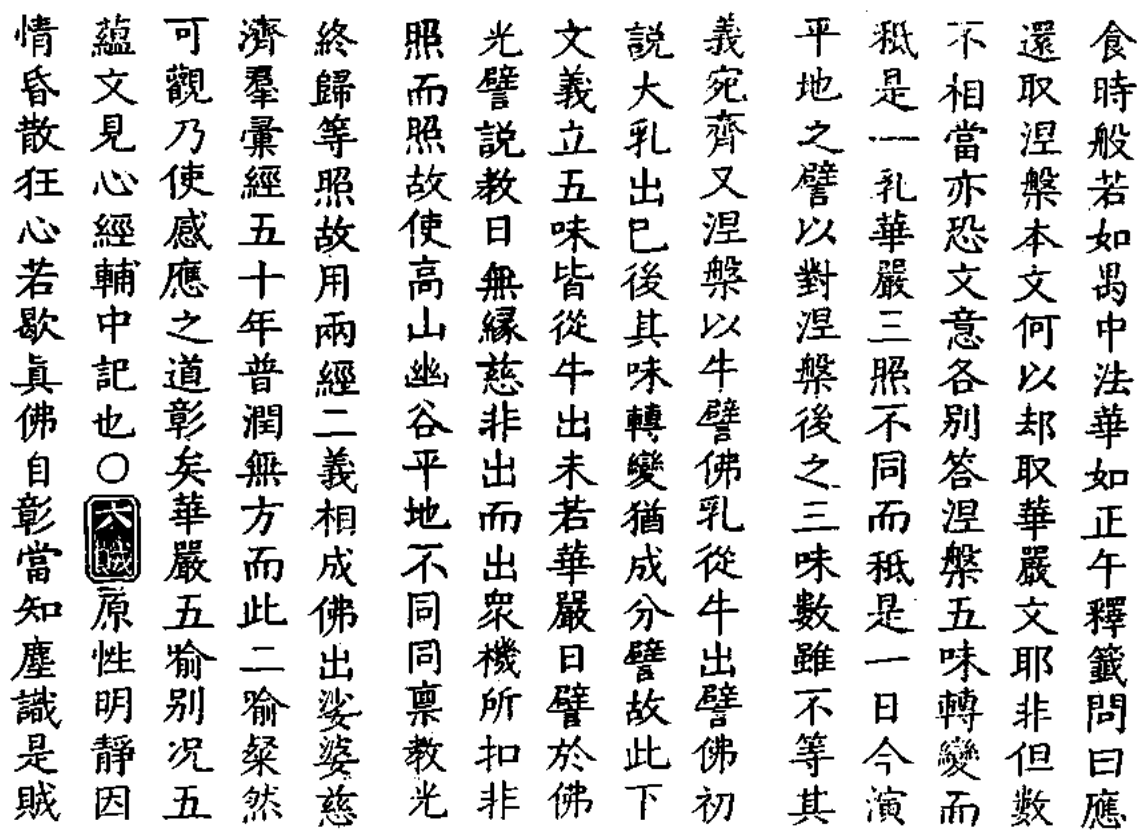 食時般若如禺中法華如正午釋籤問曰應
還取涅槃本文何以却取華嚴文耶非但數
不相當亦恐文意各別答涅槃五味轉變而
秖是一乳華嚴三照不同而秖是一日今演
平地之譬以對涅槃後之三味數雖不等其
義宛齊又涅槃以牛譬佛乳從牛出譬佛初
説大乳出已後其味轉變猶成分譬故此下
文義立五味皆從牛出未若華嚴日譬於佛
光譬説教日無縁慈非出而出衆機所扣非
照而照故使高山幽谷平地不同同禀教光
終歸等照故用兩經二義相成佛出娑婆慈
濟羣彙經五十年普潤無方而此二喻粲然
可觀乃使感應之道彰矣華嚴五喻别况五
蘊文見心經輔中記也〇六賊原性明靜因
情昏散狂心若歇眞佛自彰當知塵識是賊